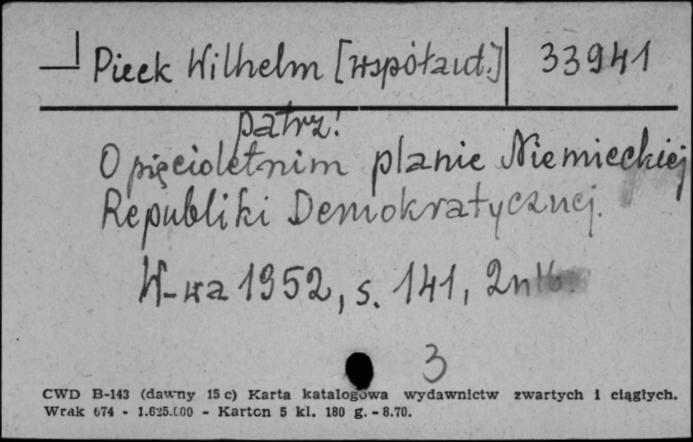 Pieck Wilhelm [współaut.] 33941
patrz!
O pięcioletnim planie Niemieckiej
Republiki Demokratycznej.
W-wa 1952, s. 141, 2nlb.
3
CWD B-143 (dawny 15 c) Karta katalogowa wydawnictw zwartych i ciągłych.
Wrak 674 - 1.625.000 - Karton 5 kl. 180 g. - 8.70.